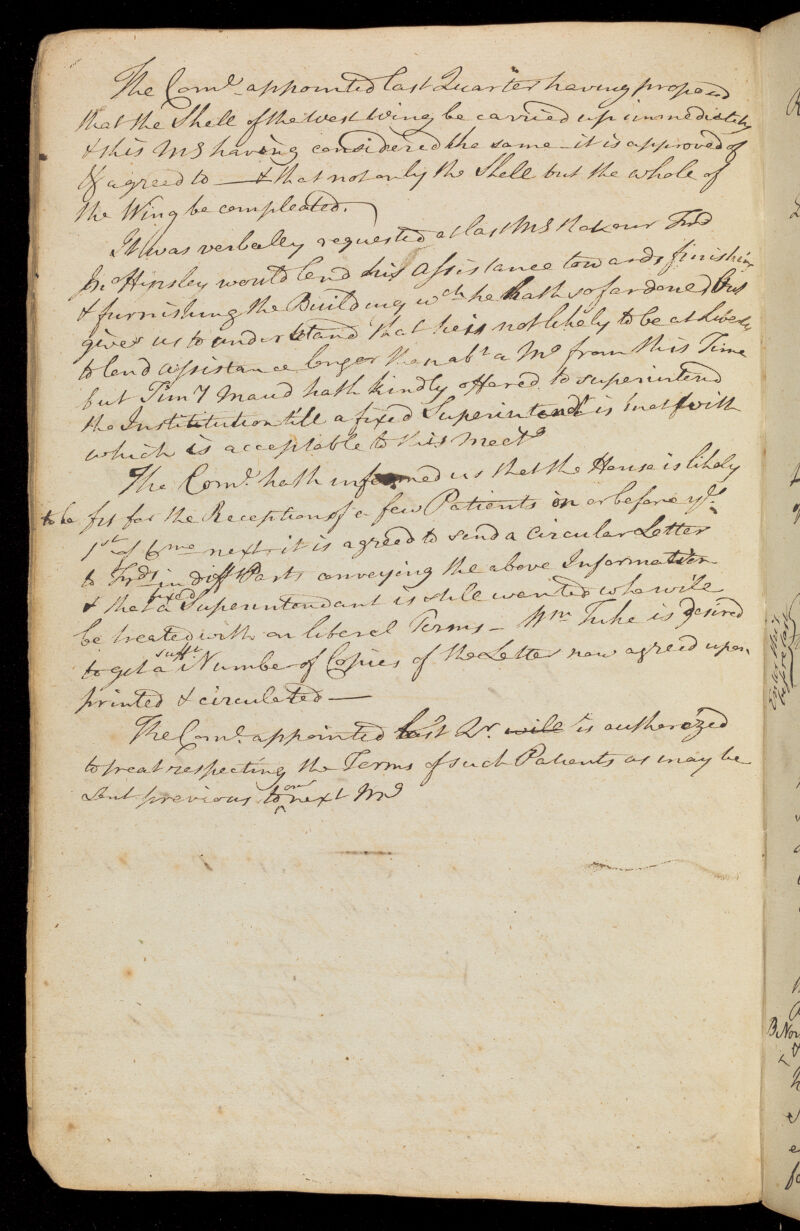 The Come. appointed last Quarter having proposed
that the Shell of the west wing be carried up immediately
& this Mg having considered the same - it is approved of
& agreed to — & that not only the Shell but the whole of
the Wing be compleated.
It was verbally requested at last Mg that our Frd
Jno Hipsley would lend his assistance towards finishing
& furnishing the Building wch he hath so far done, but
gives us to understand that he is not likely to be at liberty
to lend assistance longer than abt a Mo from this Time
but Timy Maud hath kindly offered to superintend
the Institution till a fixed Superintendt is met with
which is acceptable to this Meetg
The Come. hath informed us that the House is likely
to be fit for the Reception of a few Patients in or before ye
1st of 6mo next, it is agreed to send a circular Letter
to Frds in difft Parts conveying the above Information
& that a fixed Superintendant is still wanted who will
be treated with on liberal Terms - Wm Tuke is desired
to get a sufft Number of Copies of the Letter now agreed upon
printed & circulated —
The Come. appointed last Qr. will is authorized
to treat respecting the Terms of such Patients as may be
sent previous to our next Mg
before
B. Nor